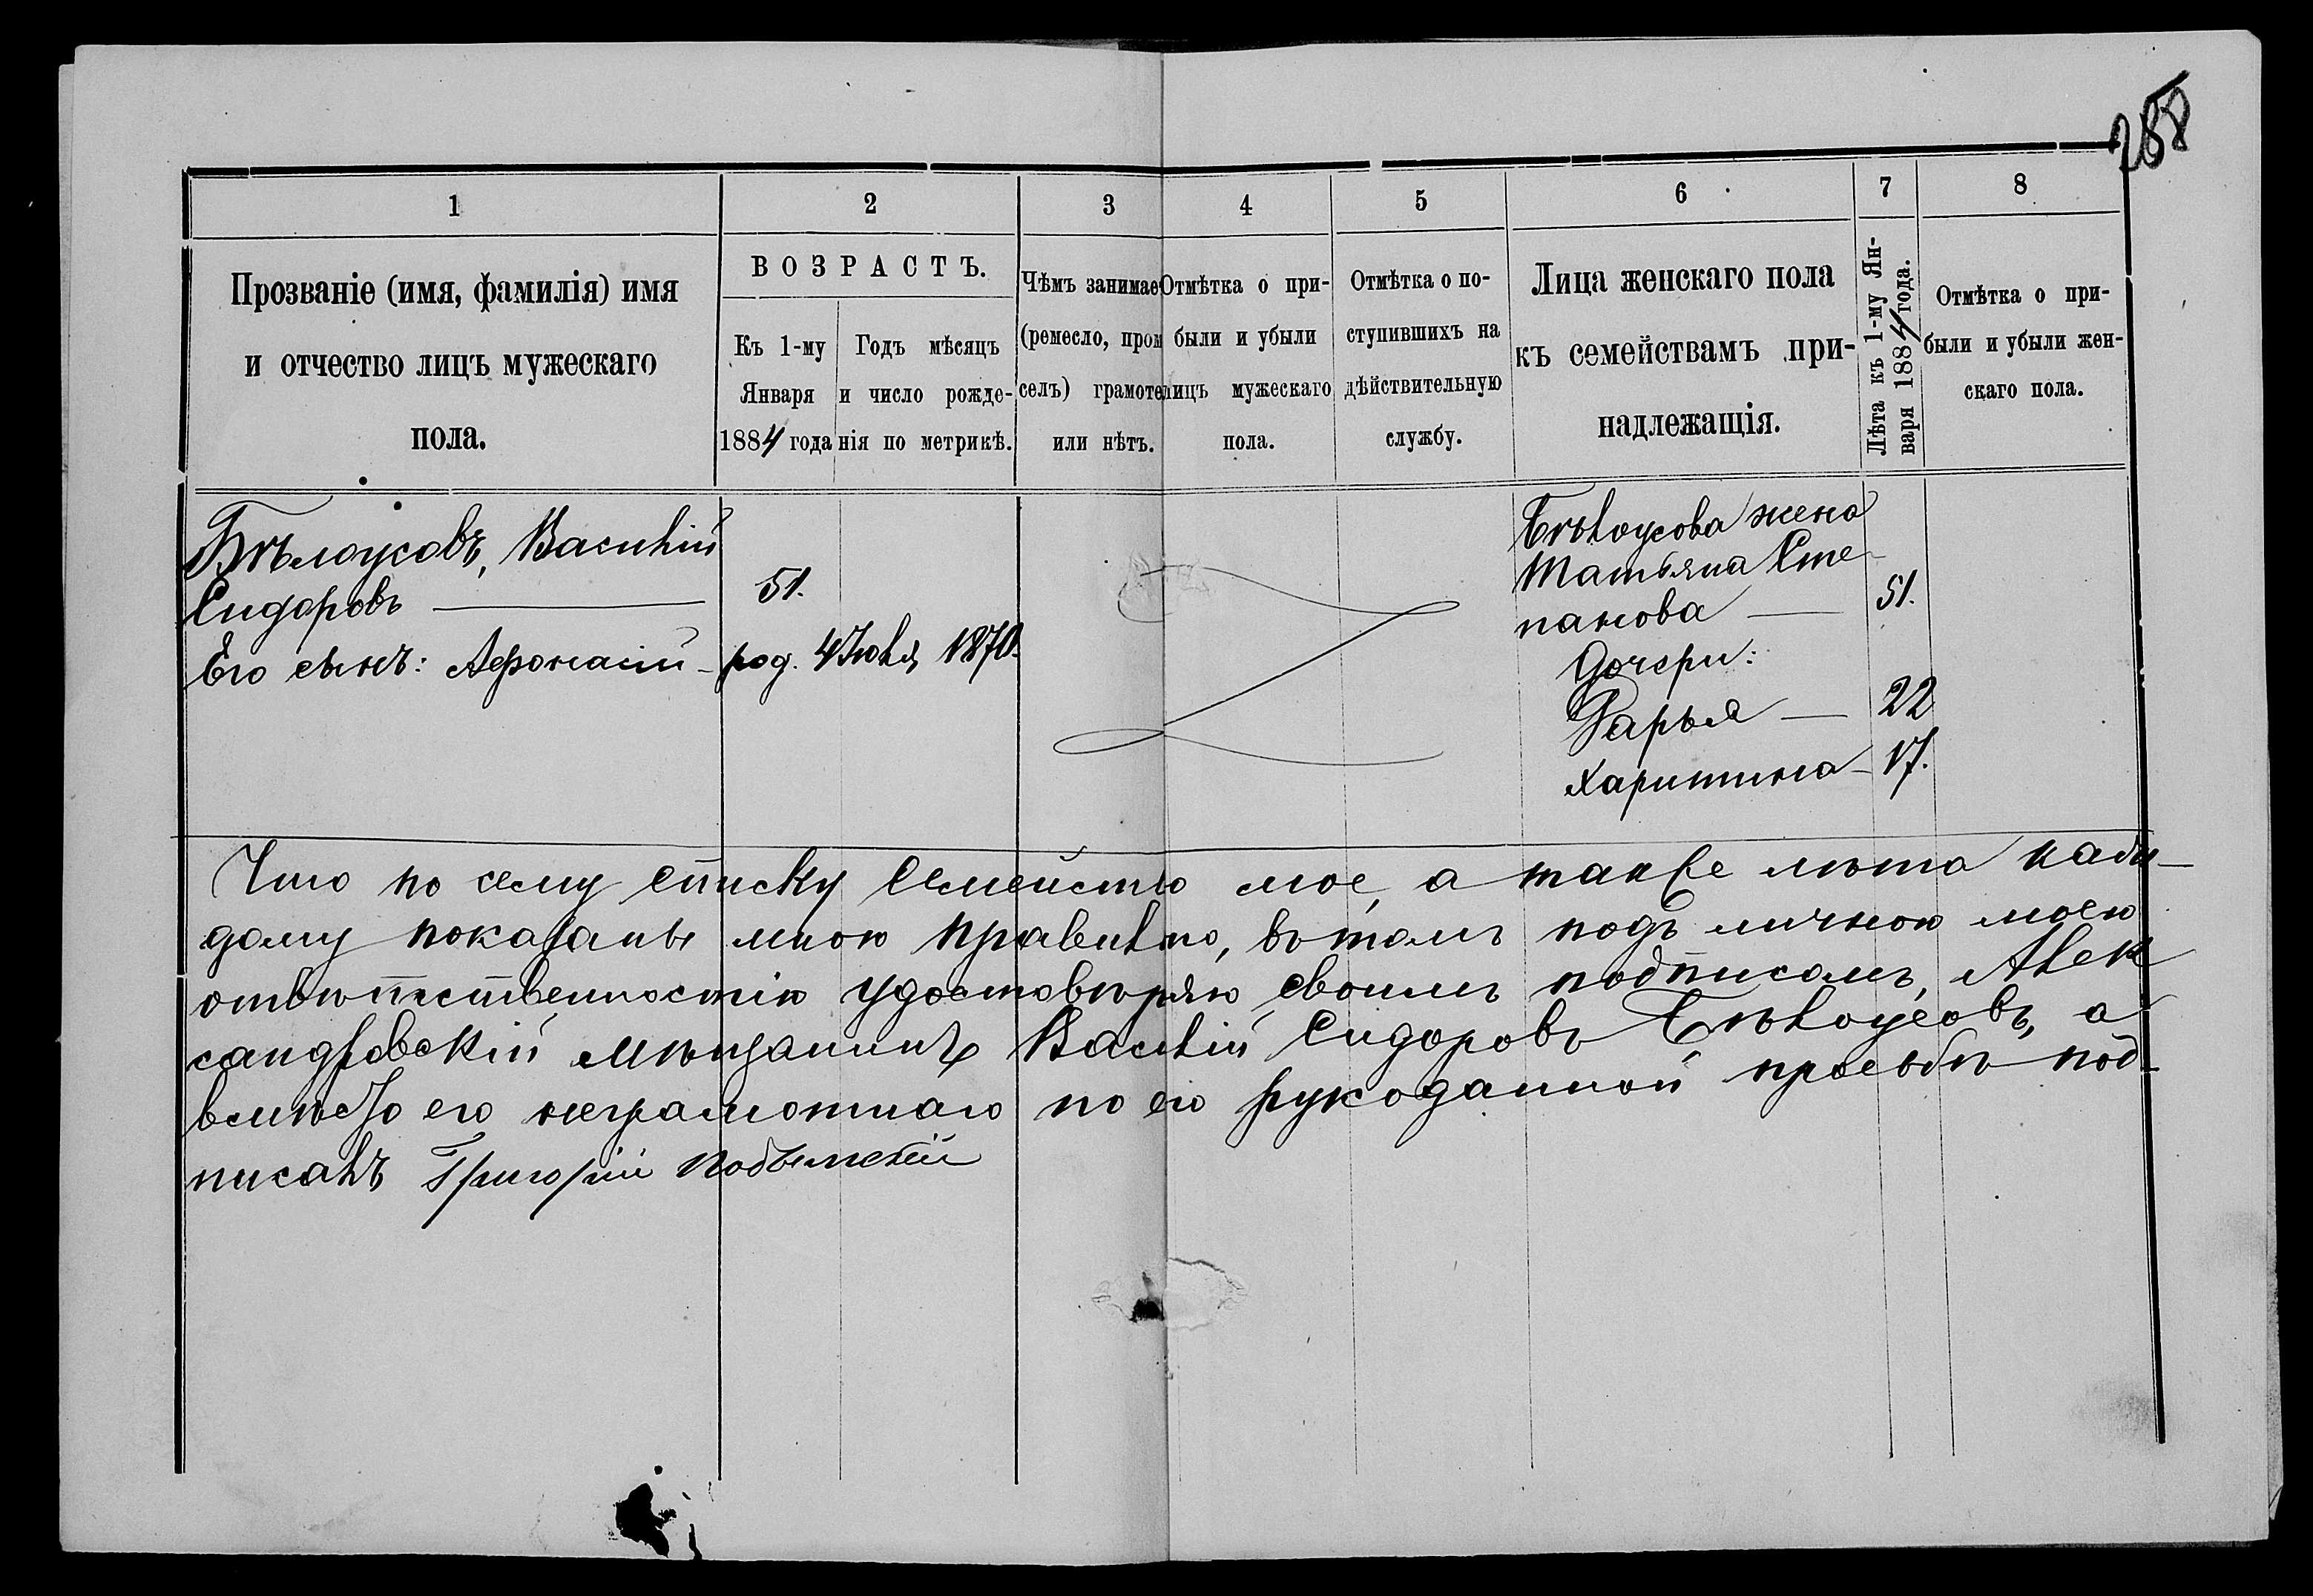 288
1 2 3 4 5 6 7 8
Прозваніе (имя, фамилія) имя
и отчество лицъ мужескаго
пола.
ВОЗРАСТЪ.
Къ 1-му
Января
1884 года
Годъ мѣсяцъ
и число рожде-
нія по метрикѣ.
Чѣмъ занимае
(ремесло, пром
селъ) грамоте
или нѣтъ.
Отмѣтка о при-
были и убыли
лицъ мужескаго
пола.
Отмѣтка о по-
ступившихъ на
дѣйствительную
службу.
Лица женскаго пола
къ семействамъ при-
надлежащія.
Лѣта къ 1-му Ян-
варя 1884 года.
Отмѣтка о при-
были и убыли жен-
скаго пола.
Бѣлоусовъ, Василій
Сидоровъ — 51.
Его сынъ: Афонасій - род. 4 Іюля 1870.
Бѣлоусова жена
Татьяна Сте-
панова — 51.
Дочери:
Дарья — 22
Харитина - 17.
Что по сему списку семейство мое, а также лѣта каж-
дому показаны мною правильно, въ томъ подъ личною моею
отвѣтственностію удостовѣряю своимъ подписомъ, Алек
сандровскій мѣщанинъ Василій Сидоровъ Бѣлоусовъ, а
вмѣсто его неграмотнаго по его рукоданной просьбѣ под-
писалъ Григорій